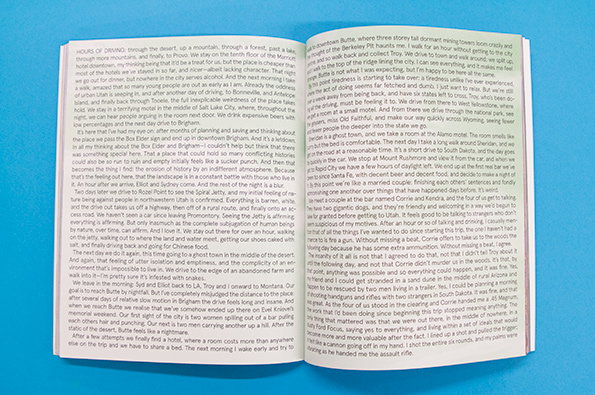 HOURS OF DRIVING: through the desert, up a mountain, through a forest, past a lake,
through more mountains, and finally, to Provo. We stay on the tenth floor of the Marriott
hotel downtown, my thinking being that it'd be a treat for us, but the place is cheaper than
most of the hotels we've stayed in so far, and nicer—albeit lacking character. That night
we go out for dinner, but nowhere in the city serves alcohol. And the next morning I take
a walk, amazed that so many young people are out as early as I am. Already the oddness
of urban Utah is seeping in, and after another day of driving, to Bonneville, and Antelope
Island, and finally back through Tooele, the full inexplicable weirdness of the place takes
hold. We stay in a terrifying motel in the middle of Salt Lake City, where, throughout the
night, we can hear people arguing in the room next door. We drink expensive beers with
low percentages and the next day drive to Brigham.
It's here that I've had my eye on: after months of planning and saving and thinking about
the place we pass the Box Elder sign and end up in downtown Brigham. And it's a letdown.
In all my thinking about the Box Elder and Brigham—I couldn't help but think that there
was something special here. That a place that could hold so many conflicting histories
could also be so run to ruin and empty initially feels like a sucker punch. And then that
becomes the thing I find: the erosion of history by an indifferent atmosphere. Because
that's the feeling out here, that the landscape is in a constant battle with those who live in
it. An hour after we arrive, Elliot and Sydney come. And the rest of the night is a blur.
Two days later we drive to Rozel Point to see the Spiral Jetty, and my initial feeling of na-
ture being against people in northwestern Utah is confirmed. Everything is barren, white,
and the drive out takes us off a highway, then off of a rural route, and finally onto an ac-
cess road. We haven't seen a car since leaving Promontory. Seeing the Jetty is affirming
everything is affirming. But only insomuch as the complete subjugation of human beings
by nature, over time, can affirm. And I love it. We stay out there for over an hour, walking
on the jetty, walking out to where the land and water meet, getting our shoes caked with
salt, and finally driving back and going for Chinese food.
The next day we do it again, this time going to a ghost town in the middle of the desert.
And again, that feeling of utter isolation and emptiness, and the complicity of an en-
vironment that's impossible to live in. We drive to the edge of an abandoned farm and
walk into it—I'm pretty sure it's infested with snakes.
We leave in the morning: Syd and Elliot back to LA, Troy and I onward to Montana. Our
goal is to reach Butte by nightfall. But I've completely misjudged the distance to the place,
after several days of relative slow motion in Brigham the drive feels long and insane. And
when we reach Butte we realize that we've somehow ended up there on Evel Knievel's
memorial weekend. Our first sight of the city is two women spilling out of a bar pulling
each others hair and punching. Our next is two men carrying another up a hill. After the
static of the desert, Butte feels like a nightmare.
After a few attempts we finally find a hotel, where a room costs more than anywhere
else on the trip and we have to share a bed. The next morning I wake early and try to
in downtown Butte, where three storey tall dormant mining towers loom crazily and
thought of the Berkeley Pit haunts me. I walk for an hour without getting to the city
and so walk back and collect Troy. We drive to town and walk around; we split up,
walk to the top of the ridge lining the city. I can see everything, and it makes me feel
Butte is not what I was expecting, but I'm happy to be here all the same.
this point tiredness is starting to take over: a tiredness unlike I've ever experienced,
the act of doing seems far fetched and dumb. I just want to relax. But we're still
a week away from being back, and have six states left to cross. Troy, who's been do-
of the driving, must be feeling it to. We drive from there to West Yellowstone, where
get a room at a small motel. And from there we drive through the national park, see
miss Old Faithful, and make our way quickly across Wyoming, seeing fewer
fewer people the deeper into the state we go.
is a ghost town, and we take a room at the Alamo motel. The room smells like
but the bed is comfortable. The next day I take a long walk around Shreider, and we
on the road at a reasonable time. It's a short drive to South Dakota, and the day goes
quickly in the car. We stop at Mount Rushmore and view it from the car, and when we
to Rapid City we have a few hours of daylight left. We end up at the first real bar we've
to since Santa Fe, with decent beer and decent food, and decide to make a night of
this point we're like a married couple: finishing each others' sentences and fondly
one another over things that have happened days before. It's weird.
meet a couple at the bar named Corrie and Kendra, and the four of us get to talking.
have two gigantic dogs, and they're friendly and welcoming in a way we'd begun to
for granted before getting to Utah. It feels good to be talking to strangers who don't
suspicious of my motives. After an hour or so of talking and drinking, I casually men-
that of all the things I've wanted to do since starting this trip, the one I haven't had a
to is fire a gun. Without missing a beat, Corrie offers to take us to the woods the
day because he has some extra ammunition. Without missing a beat, I agree.
insanity of it all is not that I agreed to do that, not that I didn't tell Troy about it
the following day, and not that Corrie didn't murder us in the woods. It's that, by
point, anything was possible and so everything could happen, and it was fine. Yes,
friend and I could get stranded in a sand dune in the middle of rural Arizona and
to be rescued by two men living in a trailer. Yes, I could be planning a morning
shooting handguns and rifles with two strangers in South Dakota. It was fine, and that
what. As the four of us stood in the clearing and Corrie handed me a .45 Magnum
the work that I'd been doing since beginning this trip stopped meaning anything. The
thing that mattered was that we were out there, in the middle of nowhere, in a
Ford Focus, saying yes to everything, and living within a set of ideals that would
more and more valuable after the fact. I lined up a shot and pulled the trigger;
like a cannon going off in my hand. I shot the entire six rounds, and my palms were
as he handed me the assault rifle.